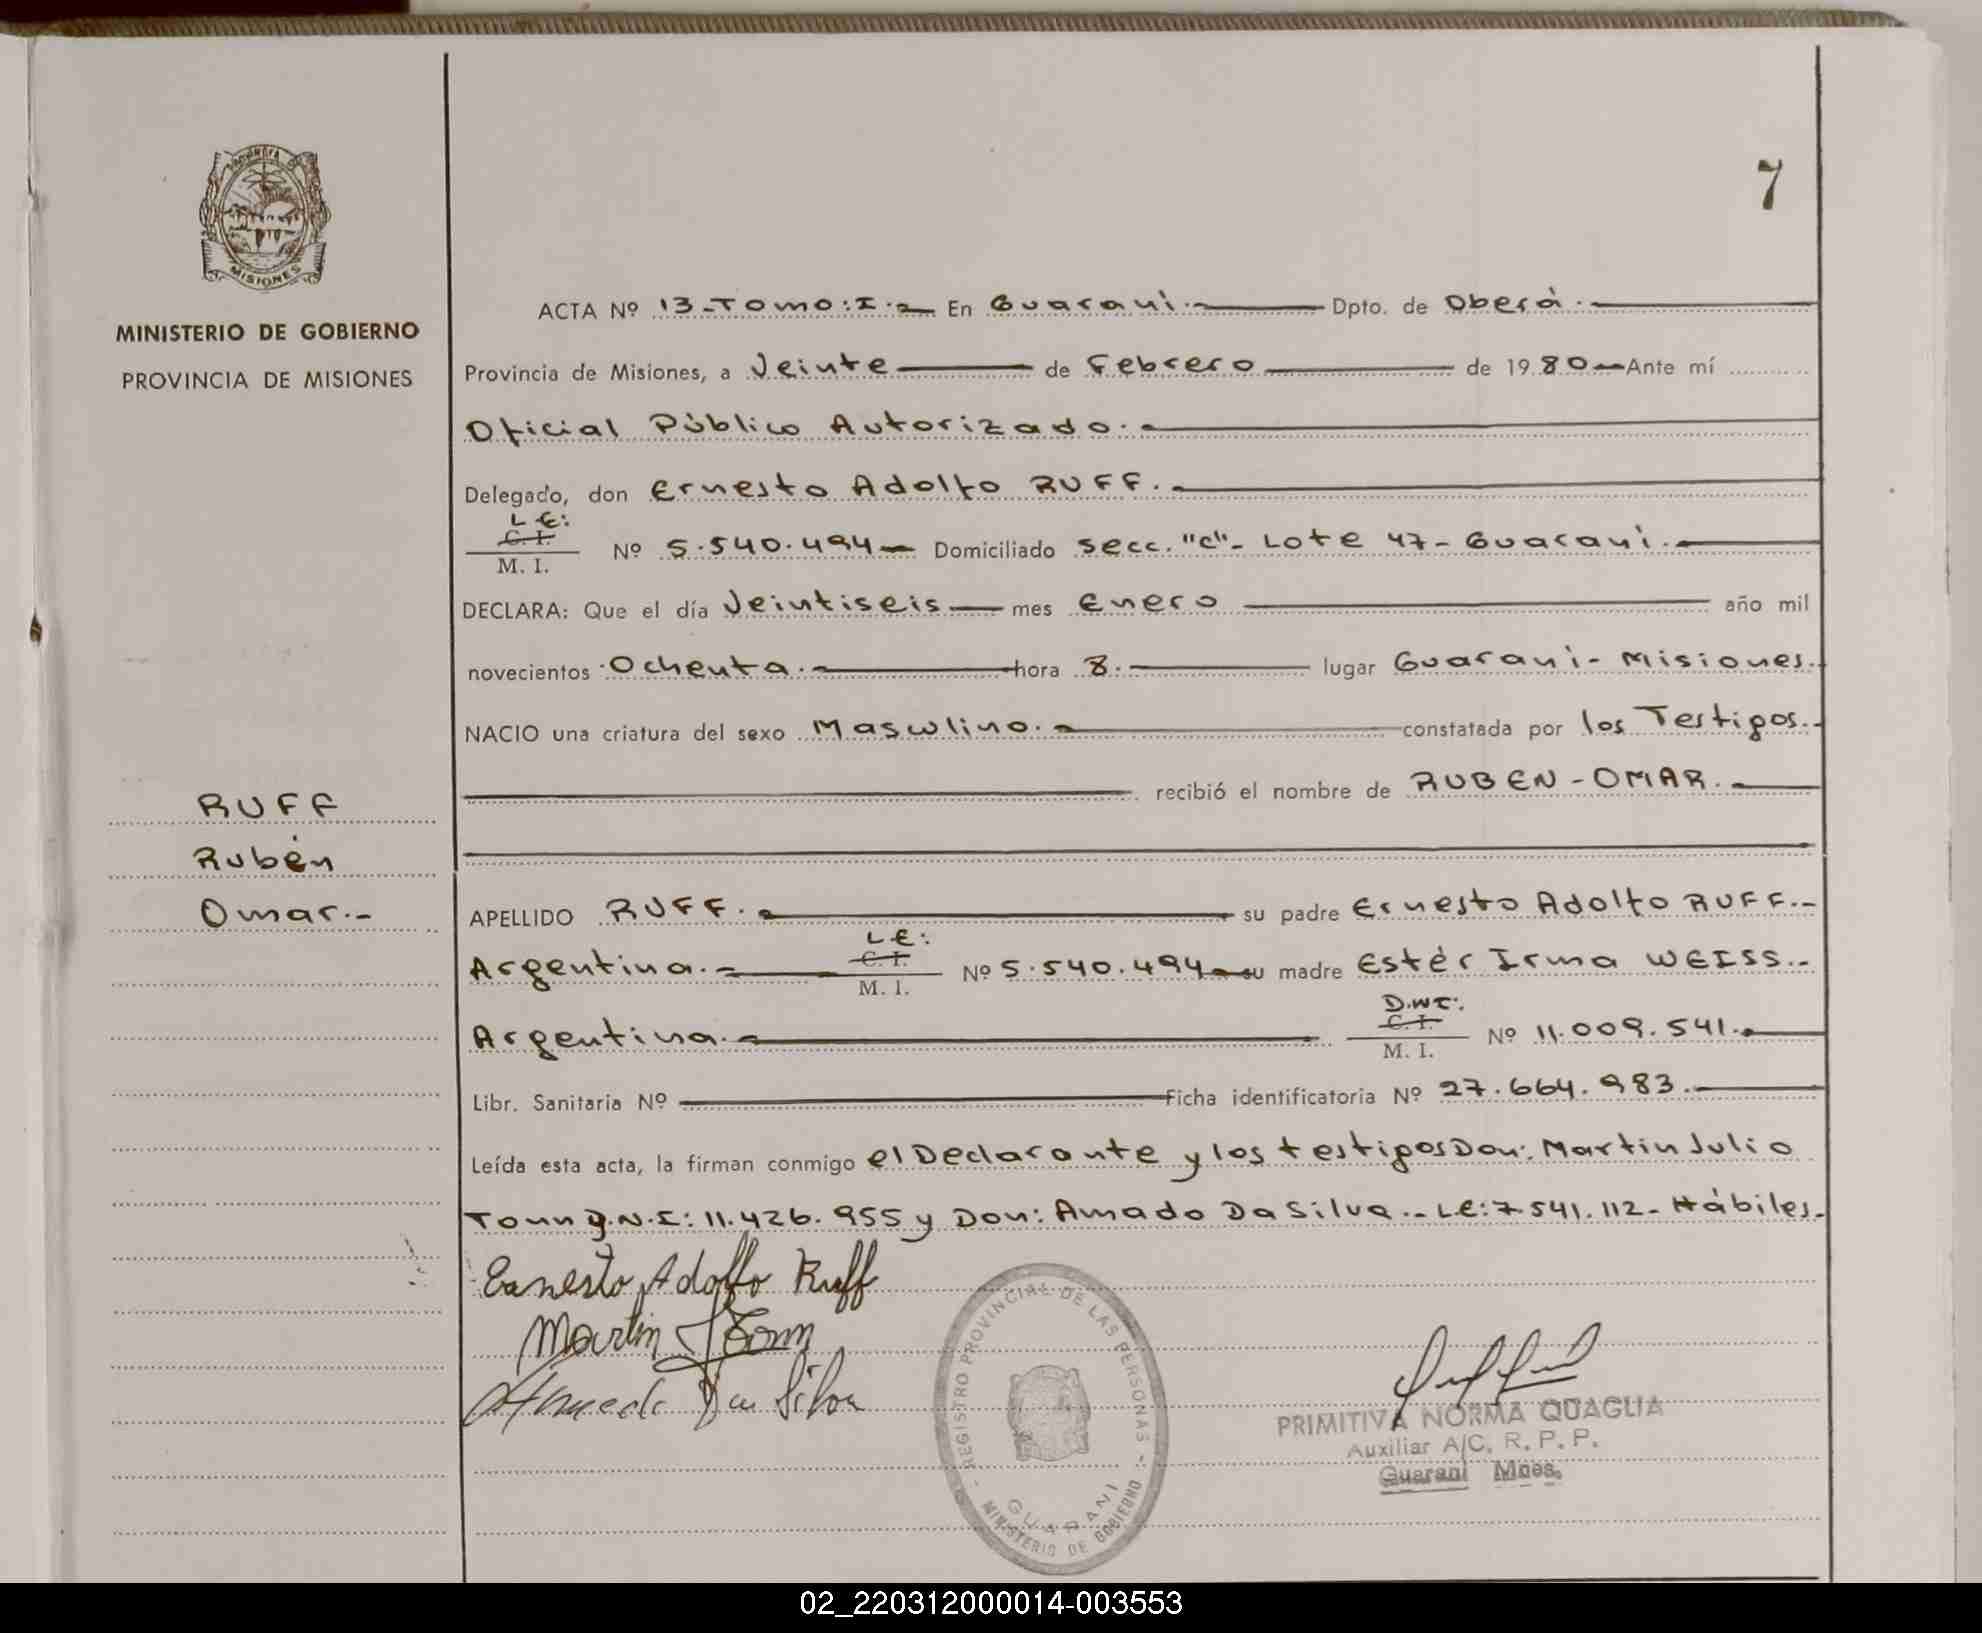 7
PROVINCIA DE
MISIONES
MINISTERIO DE GOBIERNO
PROVINCIA DE MISIONES
RUFF
Rubén
Omar.-
ACTA Nº 13-Tomo:I.- En Guaraní.- Dpto. de Oberá.-
Provincia de Misiones, a Veinte de Febrero de 1980 Ante mí
Oficial Público Autorizado.-
Delegado, don Ernesto Adolfo RUFF.-
L.E:
C. I.
M. I. Nº 5.540.494 Domiciliado Secc. "C"- Lote 47- Guaraní.-
DECLARA: Que el día Veintiseis mes Enero año mil
novecientos Ochenta.- hora 8.- lugar Guaraní- Misiones.
NACIO una criatura del sexo Masculino.- constatada por los Testigos.-
recibió el nombre de RUBEN-OMAR.-
APELLIDO RUFF.- su padre Ernesto Adolfo RUFF.-
L.E:
Argentina.- C. I. Nº 5.540.494 su madre Estér Irma WEISS.-
M. I.
D.N.I:
Argentina.- C. I. Nº 11.009.541.-
M. I.
Libr. Sanitaria Nº Ficha identificatoria Nº 27.664.983.-
Leída esta acta, la firman conmigo el Declarante y los testigos Don: Martin Julio
Tonn D.N.I: 11.426.955 y Don: Amado Da Silva.- L.E: 7.541.112- Hábiles.-
Ernesto Adolfo Ruff
Martin J Tonn
Amado Da Silva
REGISTRO PROVINCIAL DE LAS PERSONAS
GUARANI
MINISTERIO DE GOBIERNO
PRIMITIVA NORMA QUAGLIA
Auxiliar A/C. R. P. P.
Guaraní Mnes.
02_220312000014-003553